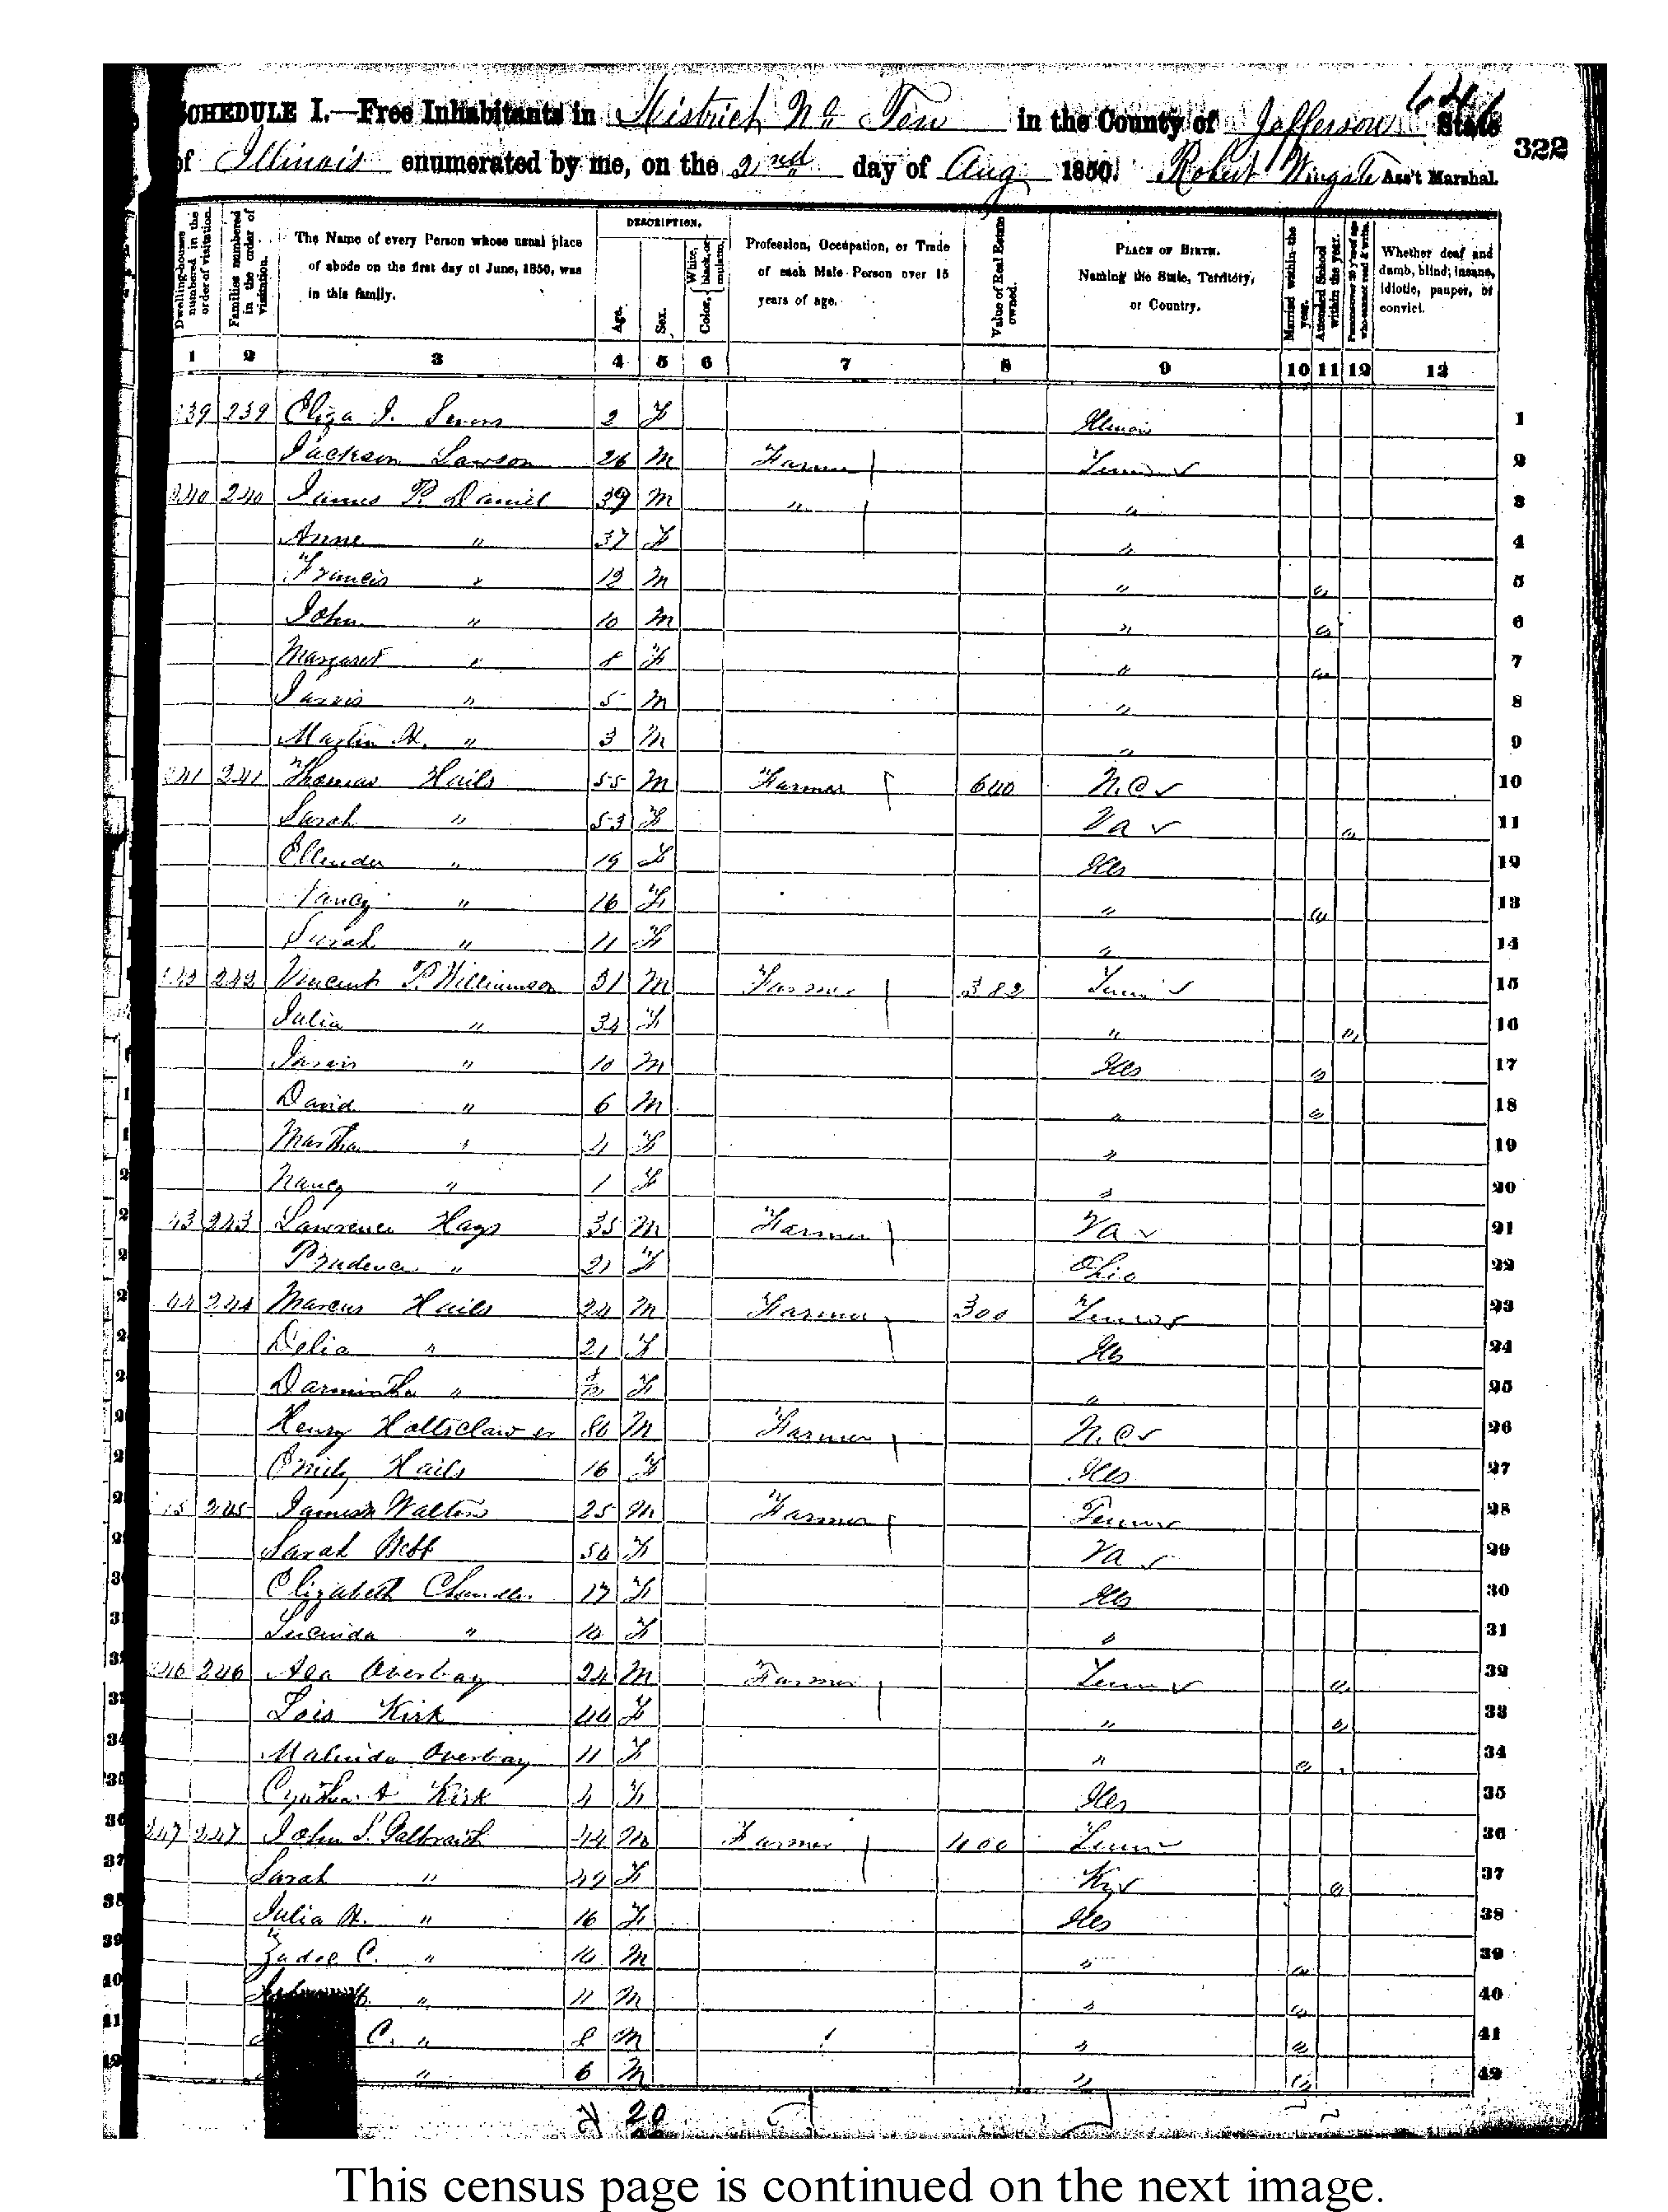 624
SCHEDULE I.—Free Inhabitants in District No Ten in the County of Jefferson State
322
of Illinois enumerated by me, on the 2nd day of Aug 1850. Robert Wingate Ass't Marshal.
Dwelling-houses numbered in the order of visitation.
Families numbered in the order of visitation.
The Name of every Person whose usual place of abode on the first day of June, 1850, was in this family.
DESCRIPTION.
Age.
Sex.
Color, { White, black, or mulatto.
Profession, Occupation, or Trade of each Male Person over 15 years of age.
Value of Real Estate owned.
PLACE OF BIRTH. Naming the State, Territory, or Country.
Married within the year.
Attended School within the year.
Persons over 20 y'rs of age who cannot read & write.
Whether deaf and dumb, blind, insane, idiotic, pauper, or convict.
1 2 3 4 5 6 7 8 9 10 11 12 13
239 239 Eliza J. 2 F Illinois 1
Jackson Lawson 26 M Farmer Tenn 2
240 240 James P. Daniel 39 M " " 3
Anne " 37 F " 4
Francis " 12 M " " 5
John " 10 M " " 6
Margaret " 8 F " " 7
Jarvis " 5 M " 8
Martin H. " 3 M " 9
241 241 Thomas Hails 55 M Farmer 640 N.C 10
Sarah " 53 F Va " 11
Ellender " 19 F Ills 12
Nancy " 16 F " " 13
Sarah " 11 F " 14
242 242 Vincent P. Williamson 31 M Farmer 382 Tenn 15
Julia " 34 F " " 16
Jarvis " 10 M Ills " 17
David " 6 M " " 18
Martha " 4 F " 19
Nancy " 1 F " 20
43 243 Lawrence Hays 35 M Farmer Va 21
Prudence " 21 F Ohio 22
44 244 Marcus Hails 24 M Farmer 300 Tenn 23
Delia " 21 F Ills 24
Darmintha " F " 25
Henry Holtsclaw 80 M Farmer N.C 26
Emily Hails 16 F Ills 27
45 245 James Walton 25 M Farmer Tenn 28
Sarah Webb 54 F Va 29
Elizabeth Chandler 17 F Ills 30
Lucinda " 14 F " 31
246 246 Asa Overbay 24 M Farmer Tenn " 32
Lois Kirk 44 F " " 33
Malinda Overbay 11 F " " 34
Cynthia A Kirk 4 F Ills 35
247 247 John S. Galbraith 44 M Farmer 400 Tenn 36
Sarah " 42 F Ky " 37
Julia H. " 16 F Ills 38
Zadoc C. " 14 M " " 39
" 11 M " " 40
C. " 8 M " " 41
" 6 M " " 42
20
This census page is continued on the next image.